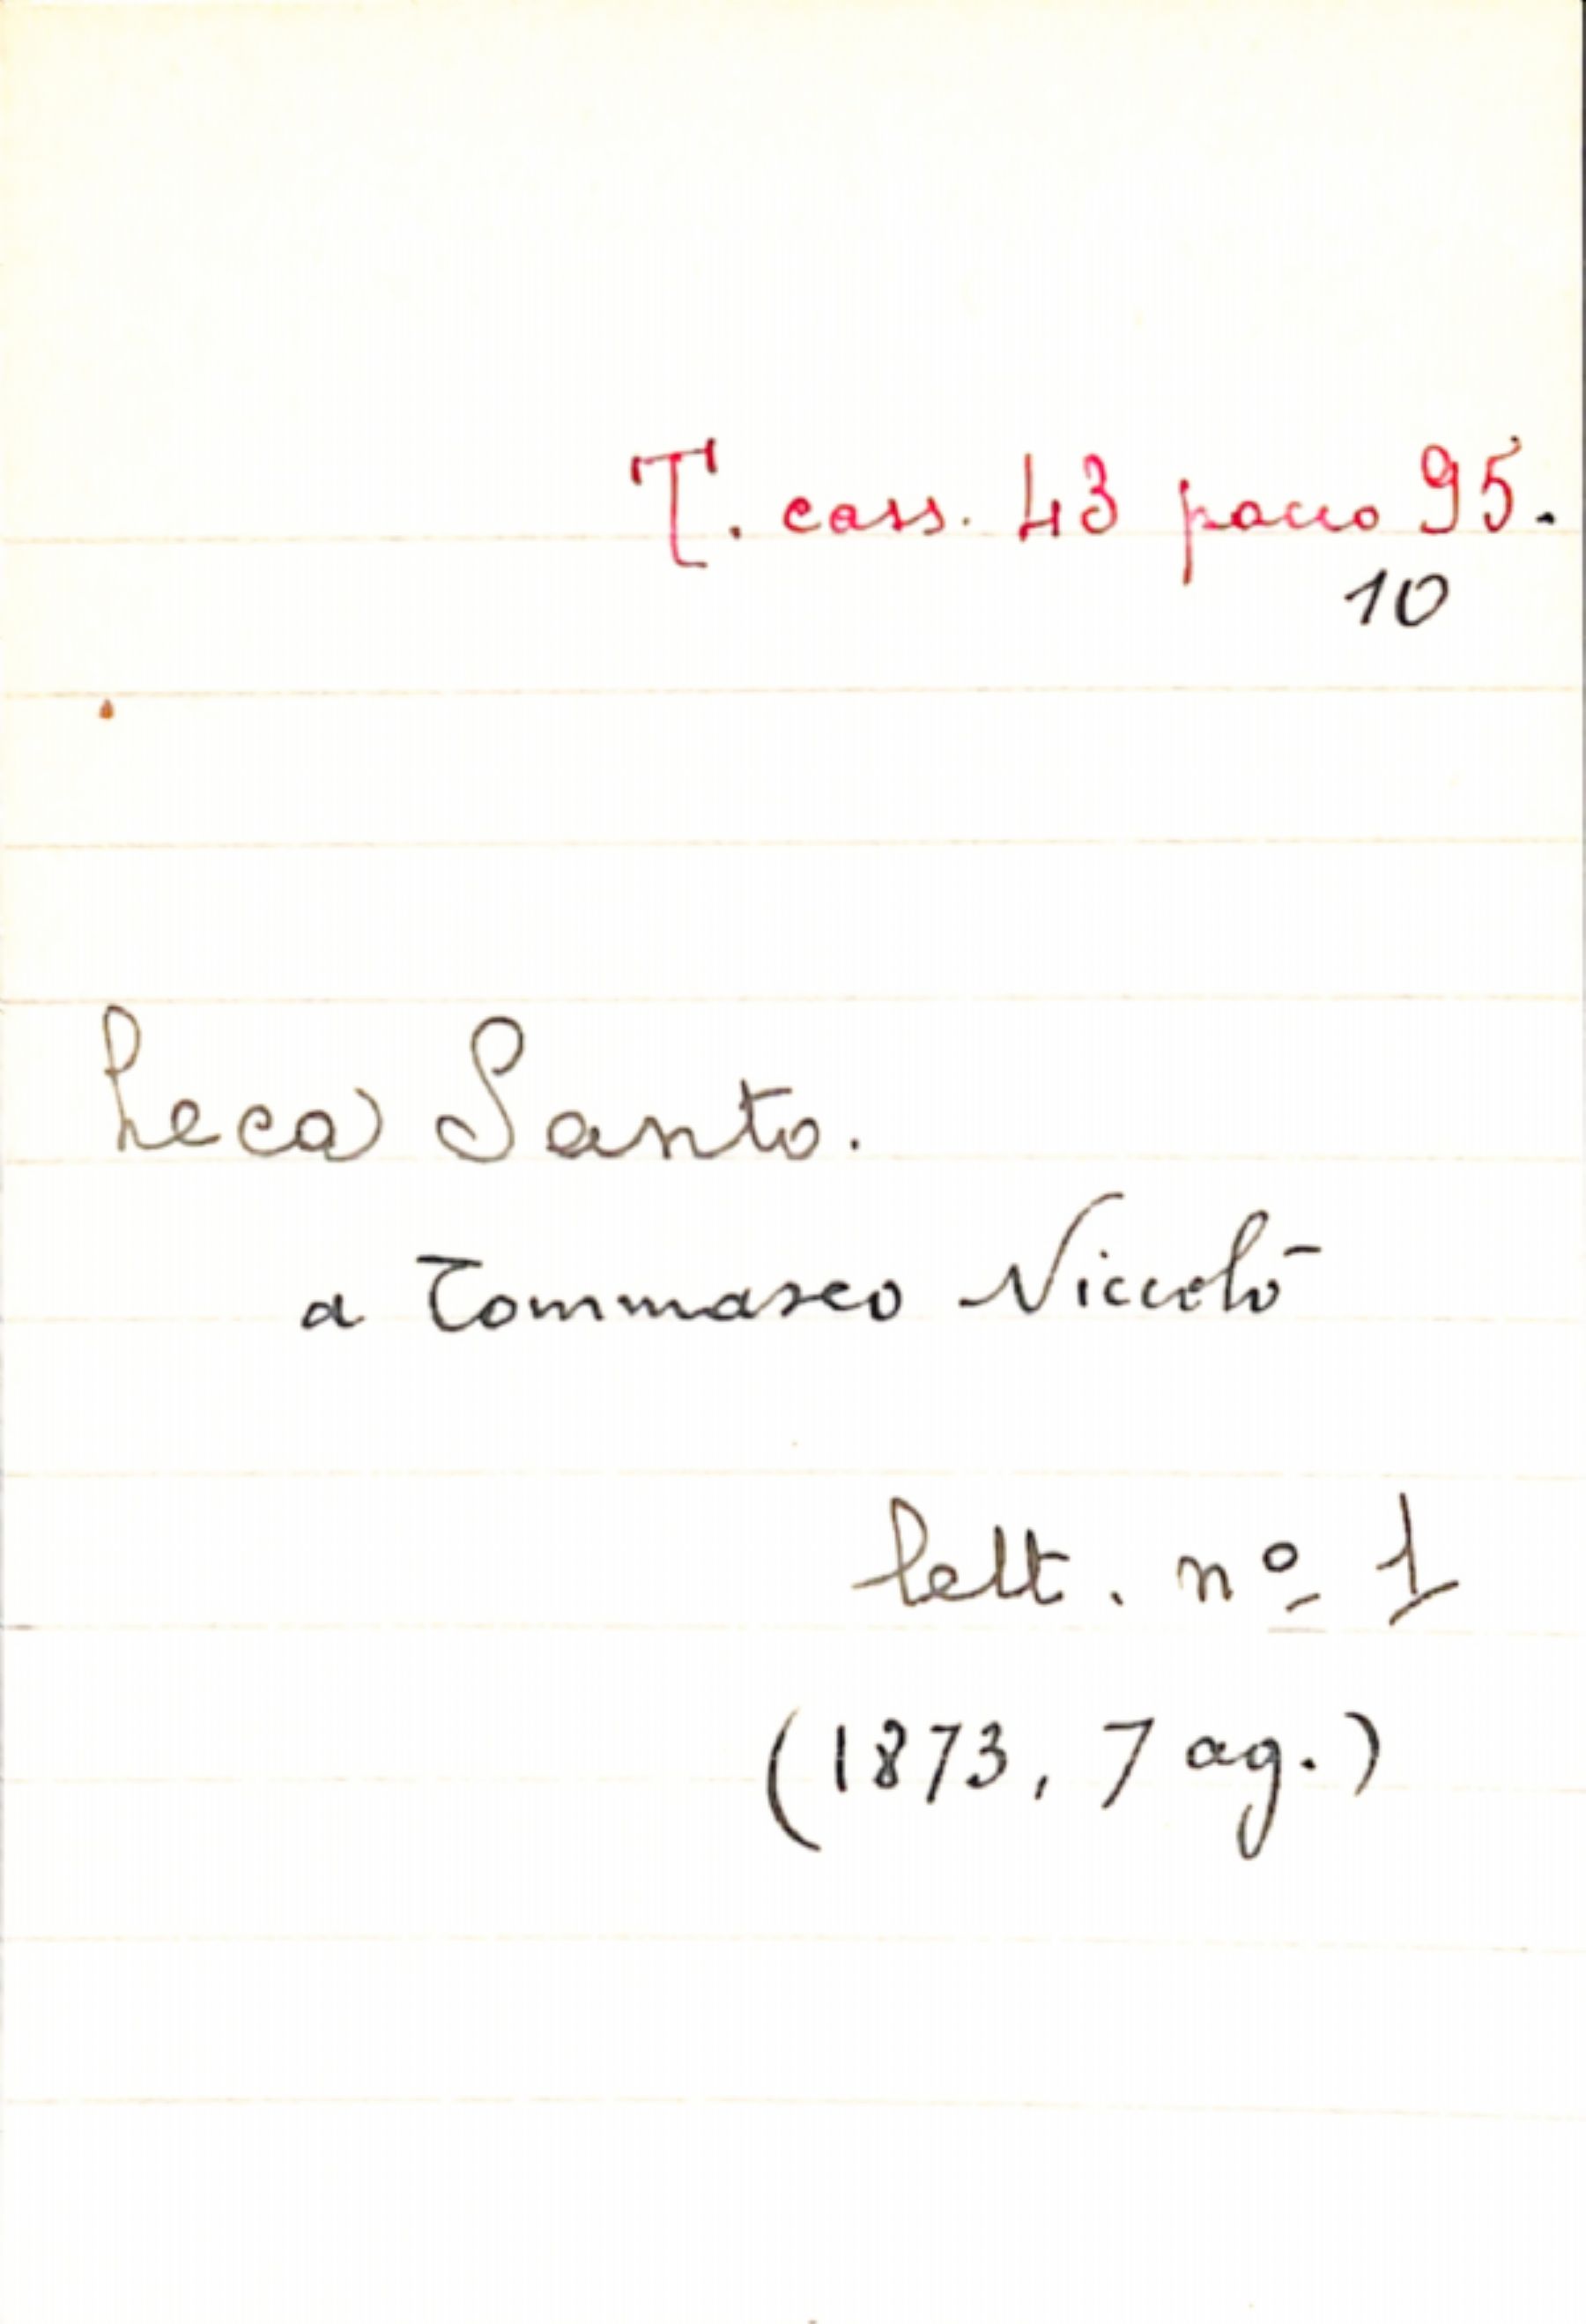 T. cass. 43 pacco 95.
10
Leca Santo.
a Tommaseo Niccolò
lett. nº 1
(1873, 7 ag.)